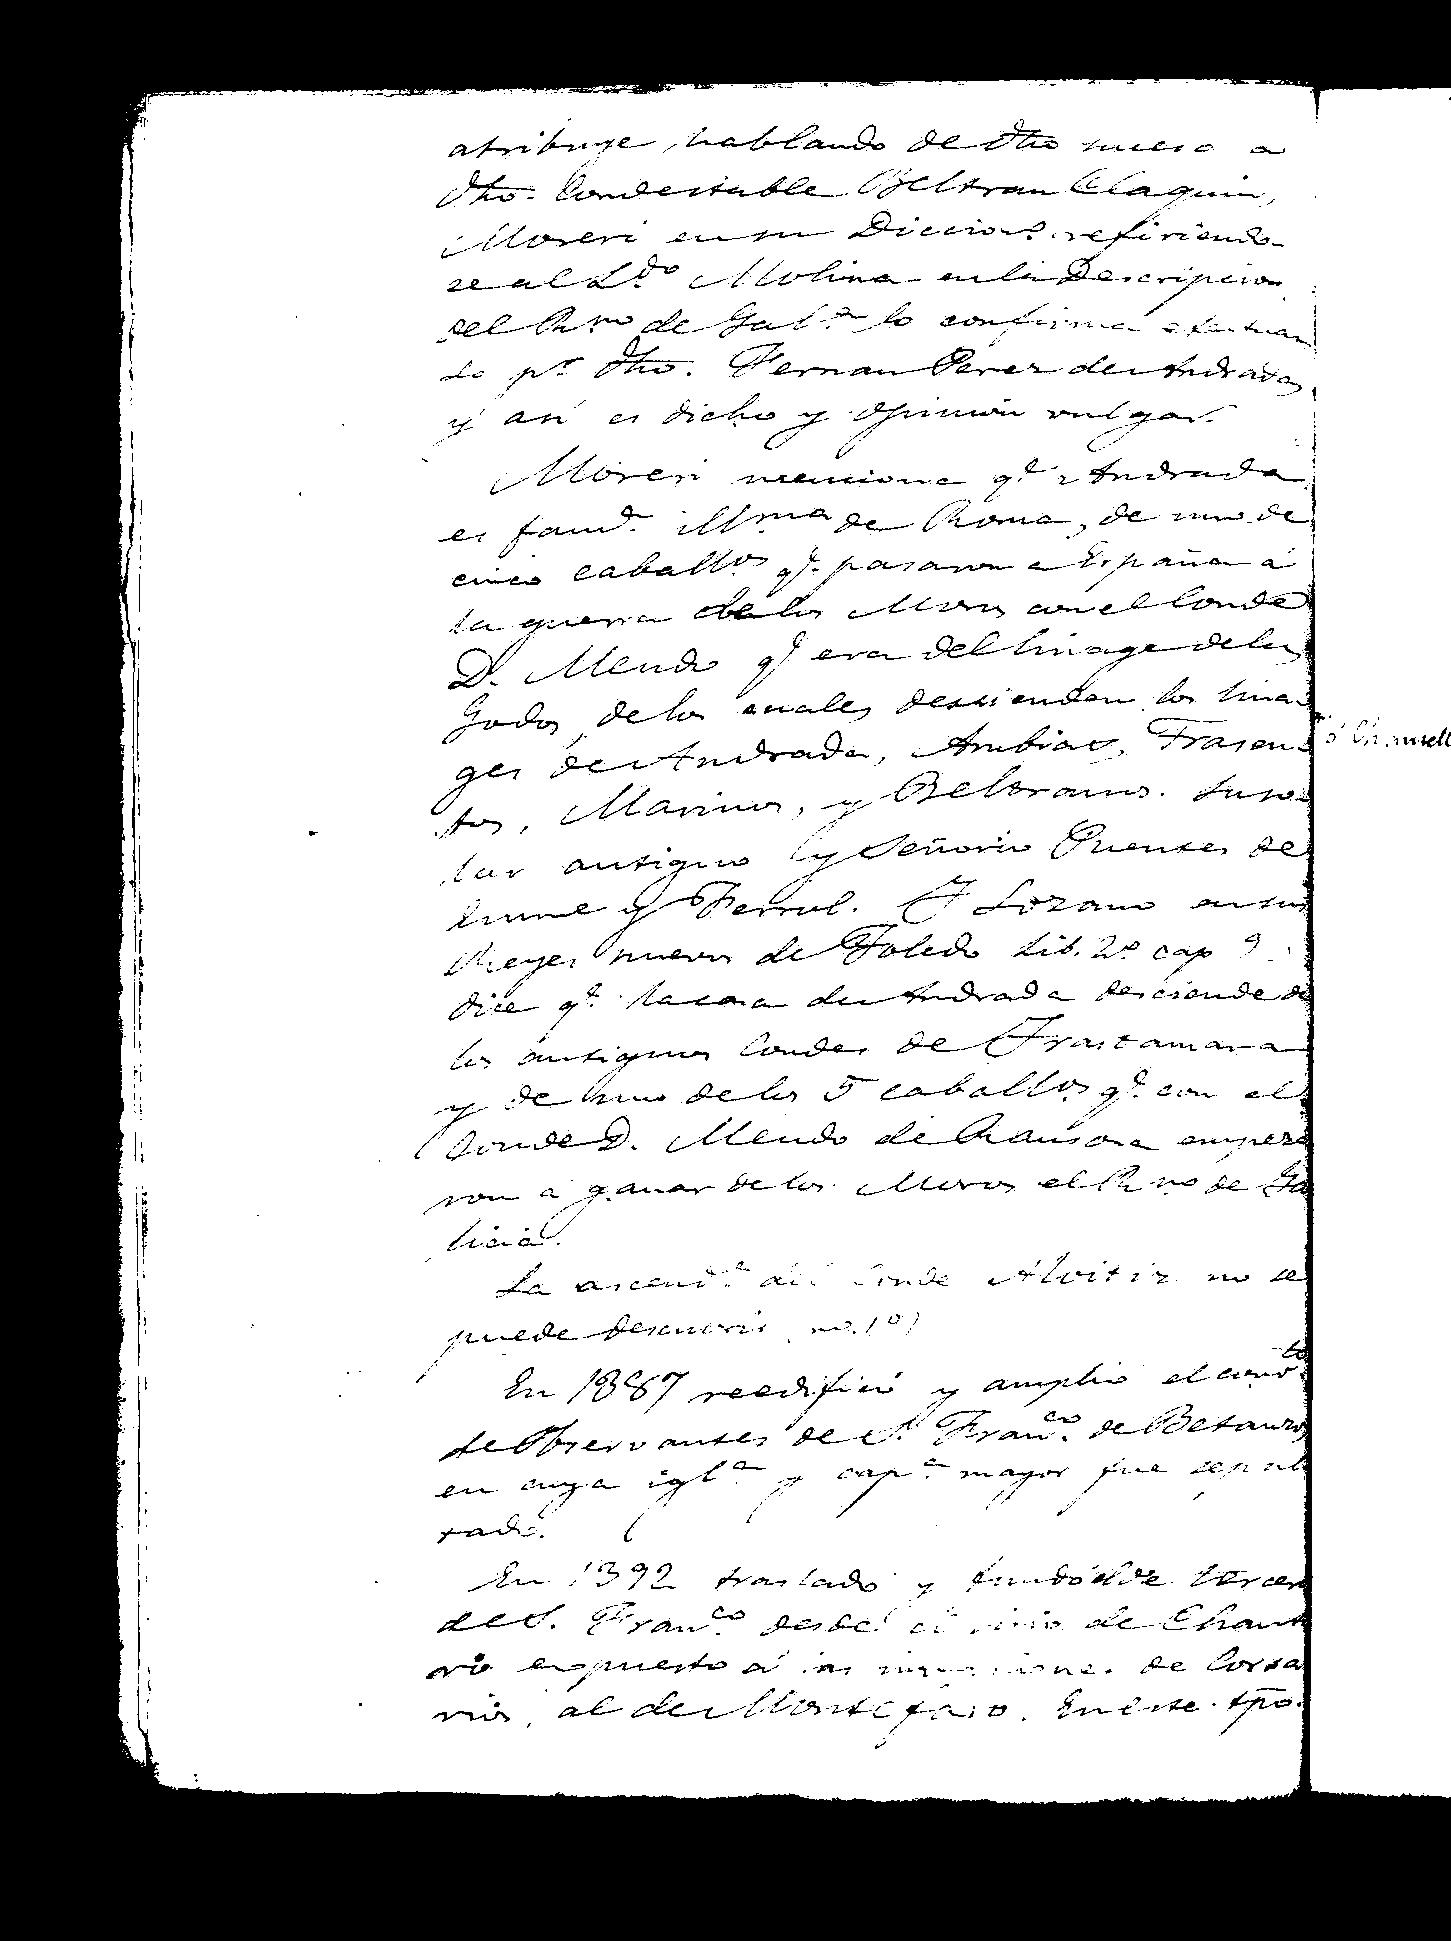 atribuye, hablando de dho suceso a
dho. Condestable Beltran Claquin,
Moreri en su Diccion.º refiriendo-
se al L.do Molina en la Descripcion
del Rno de Gal.ª lo confirma efectuan
do p.r dho. Fernan Perez de Andrade,
y asi es dicho y opinion vulgar.
Moreri menciona q.e Andrada
es fami.ª illma de Roma, de uno de
cinco caballos q.e pasaron a España á
la guerra de los Moros con el Conde
D. Mendo q.e era del linage de los
Godos, de los cuales descienden los lina-
ges de Andrada, Ambias, Trasan-
tos, Marinos, y Beltranos. Su so-
lar antiguo y Señorio Puentes de
Eume y Ferrol. Lozano en sus
Reyes nuevos de Toledo Lib. 2º cap 9
dice q.e la casa de Andrada desciende de
los antiguos Condes de Trastamara
y de uno de los 5 caballos q.e con el
Conde D. Mendo de Rausona empeza
ron á ganar de los Moros el Rno de Ga
licia.
La ascend.ª del Conde Alvitiz no se
puede descuvrir
En 1387 reedificó y amplió el convto
de Observantes de S. Franco. de Betanzos
en cuya igl.ª y cap.ª mayor fue sepul
tado.
En 1392 trasladó y fundó el de tercero
de S. Franco. desde el sitio de Chante
ro expuesto á las invasiones de Corsa
rios, al de Montefaro. En este tpo.